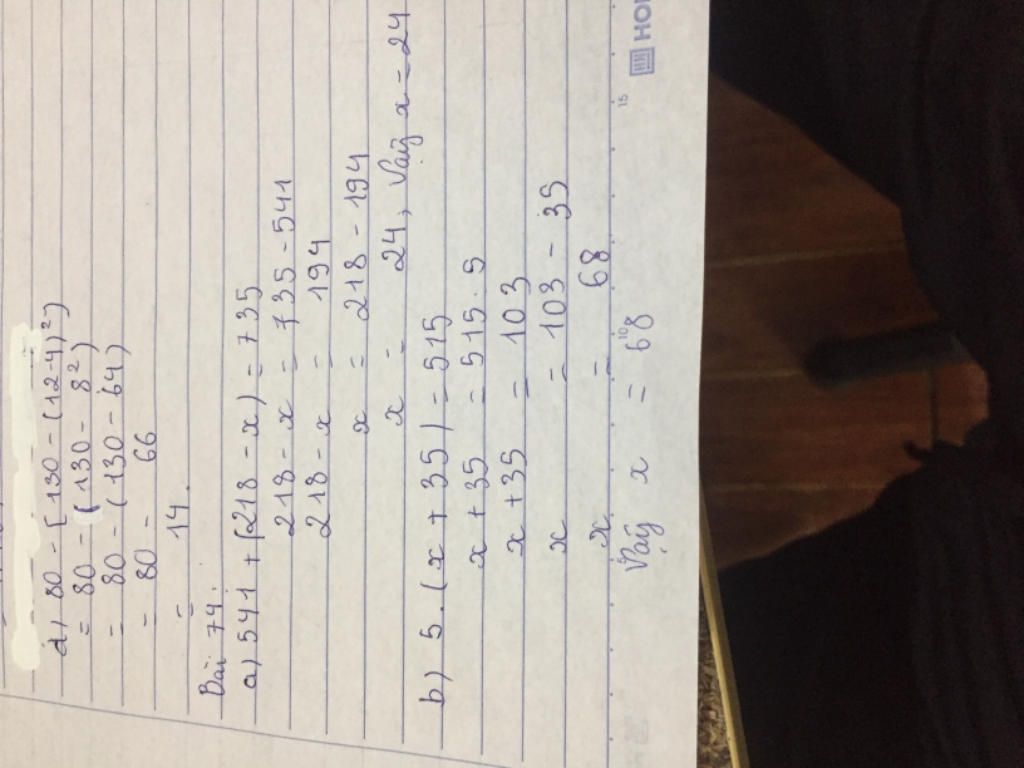 d) 80 - [130 - (12-4)²)
= 80 - (130 - 8²)
= 80 - (130 - 64)
= 80 - 66
= 14.
Bài 74:
a) 541 + (218 - x) = 735
218 - x = 735 - 541
218 - x = 194
x = 218 - 194
x = 24, Vậy x = 24
b) 5 . (x + 35) = 515
x + 35 = 515 : 5
x + 35 = 103
x = 103 - 35
x = 68
Vậy x = 68
10
15